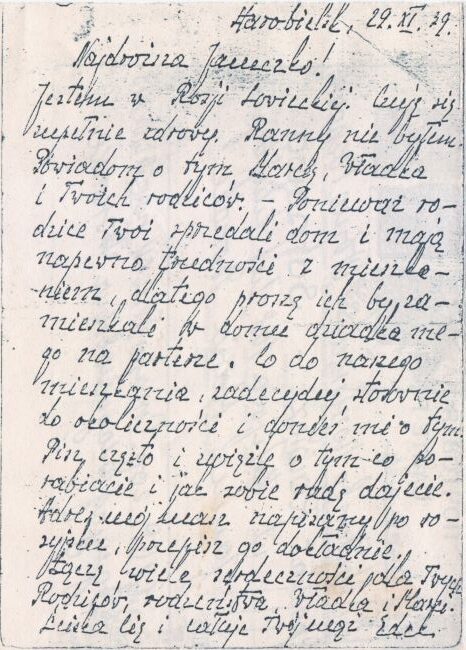 Starobielsk, 29.XI.39.
Najdroższa Janeczko!
Jestem w Rosji Sowieckiej. Czuję się
zupełnie zdrowy. Ranny nie byłem.
Powiadom o tym Marię, Władka
i Twoich rodziców. – Ponieważ ro-
dzice Twoi sprzedali dom i mają
napewno trudności z mieszka-
niem, dlatego proszę ich by za-
mieszkali w domu dziadka me-
go na parterze. Co do naszego
mieszkania, zadecyduj stosownie
do okoliczności i donieś mi o tym.
Pisz często i wyślij o tym co po-
rabiacie i jak sobie radę dajecie.
Adres mój masz napisany po ro-
syjsku, przepisz go dokładnie.
Łączę wiele serdeczności dla Twych
Rodziców, rodzeństwa, Władka i Marii.
Ściska Cię i całuje Twój mąż Edek